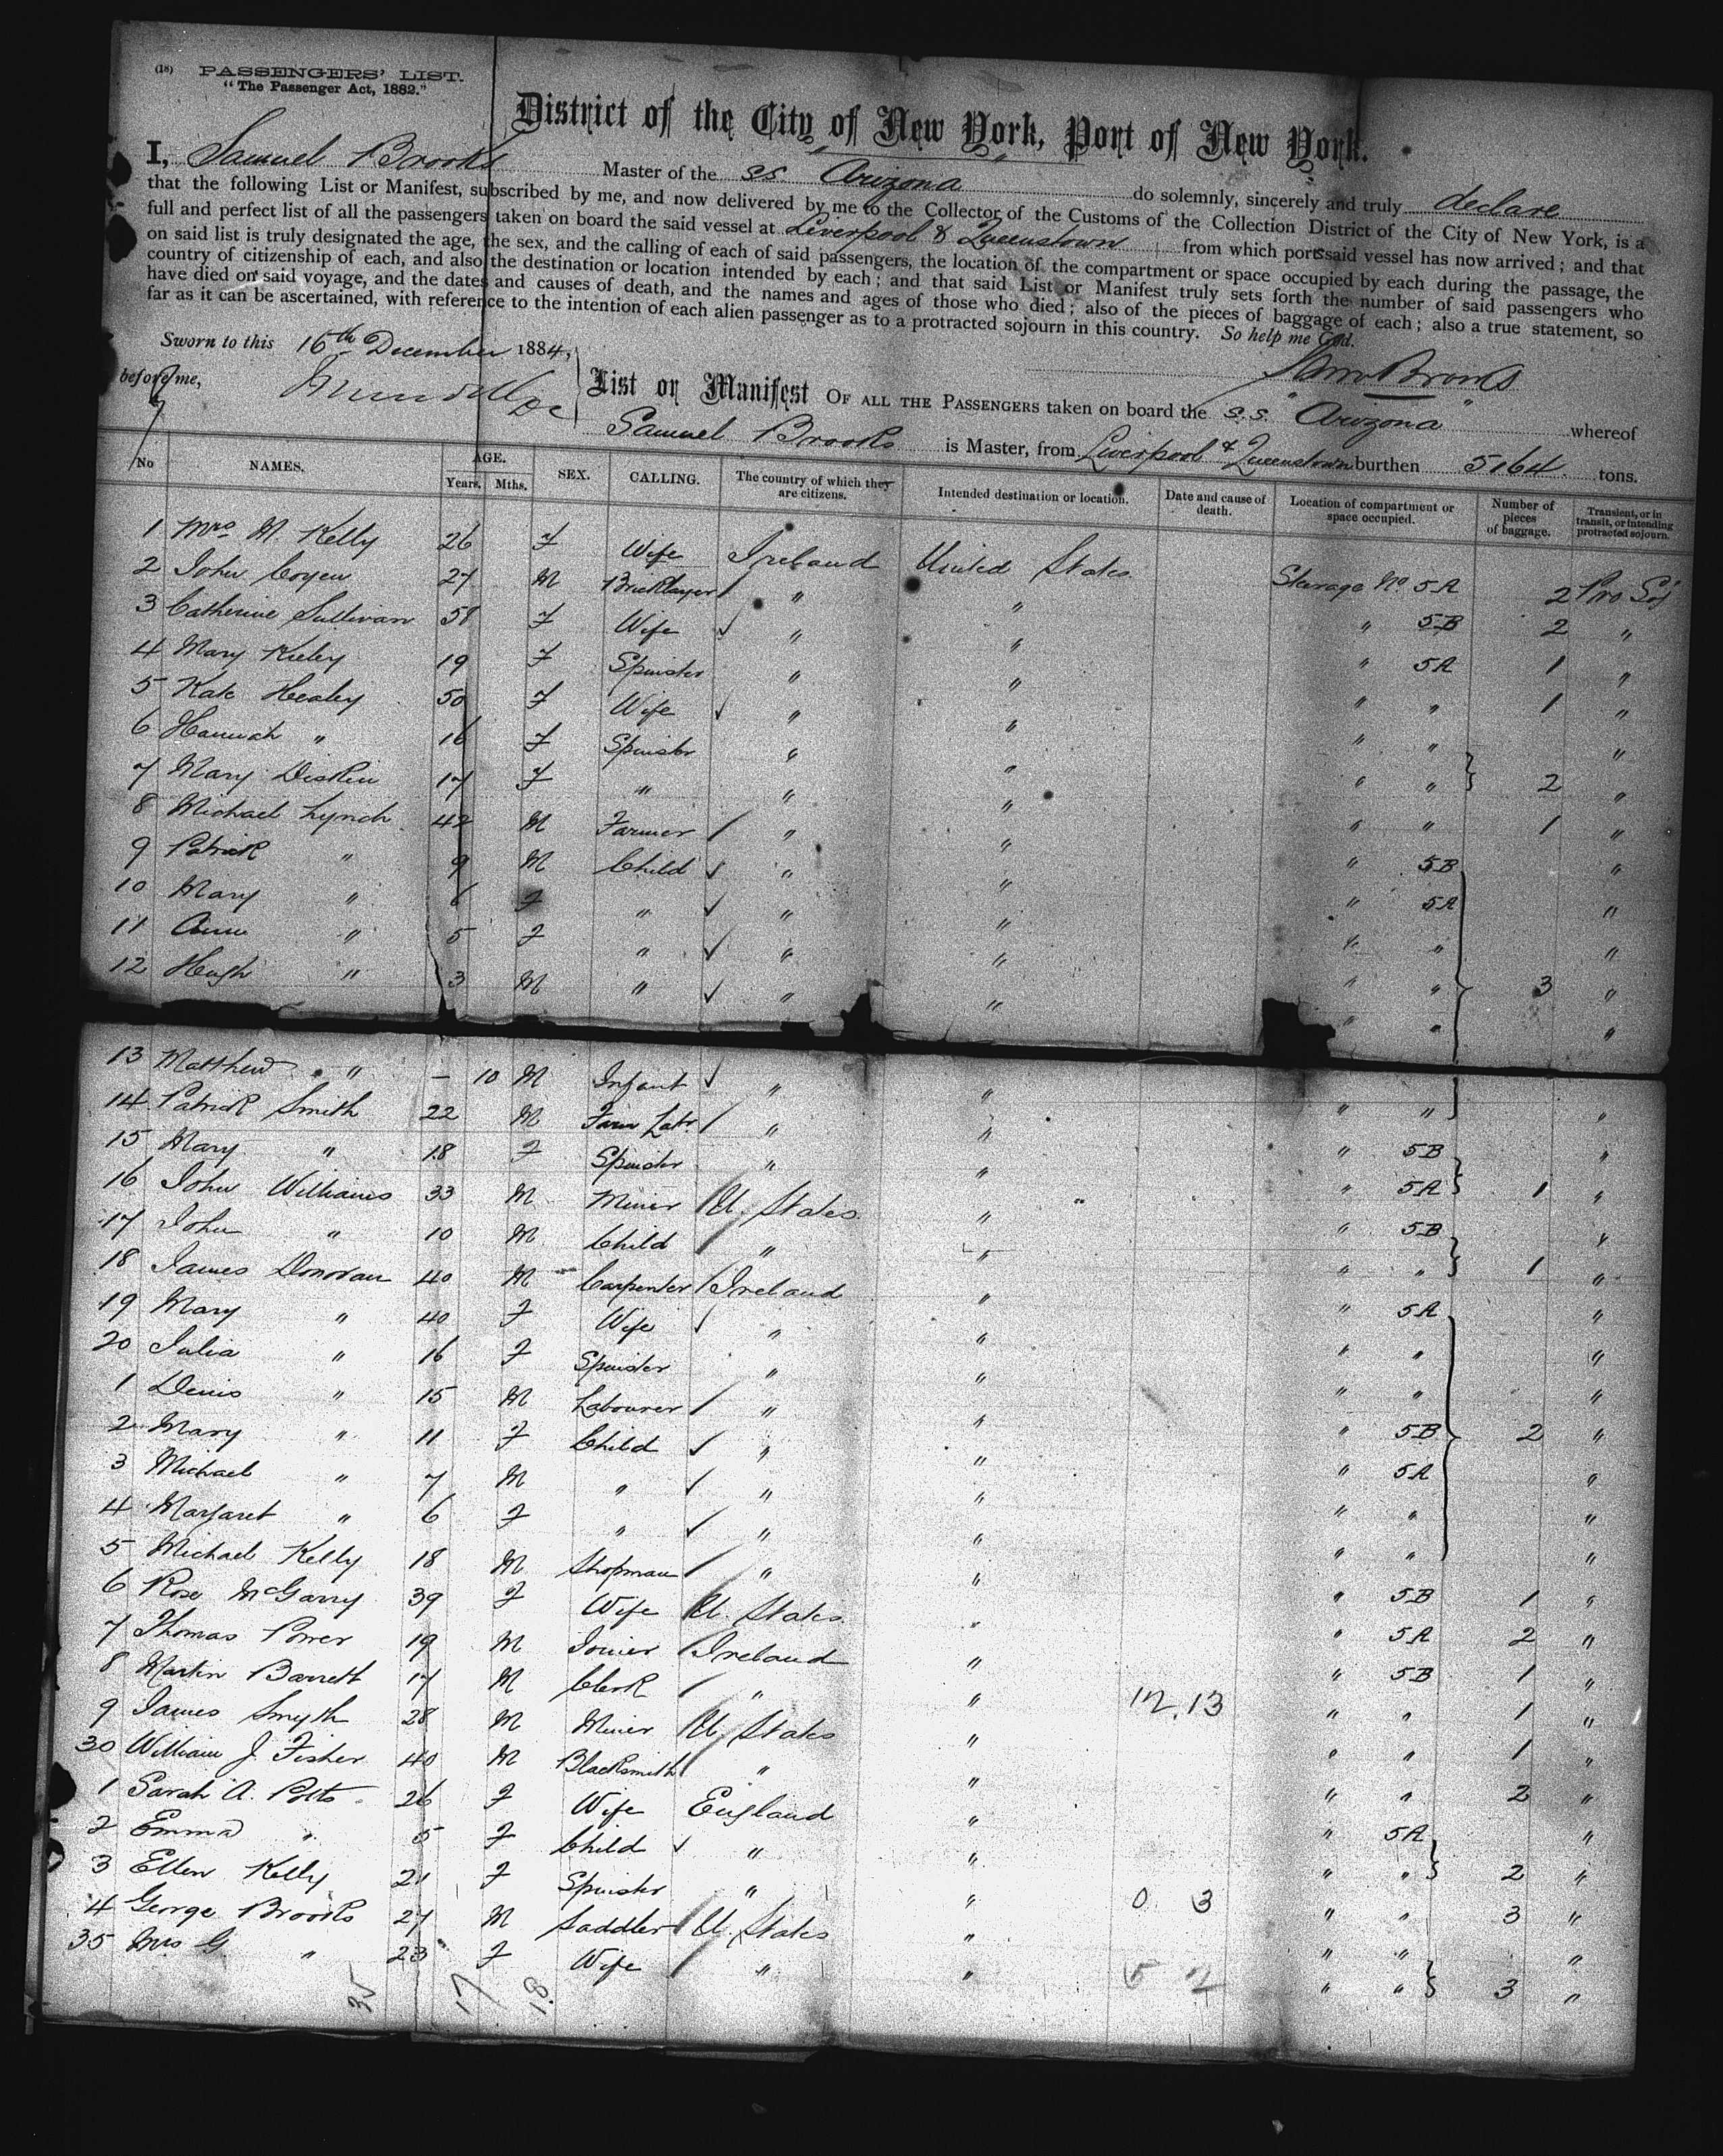 (18) PASSENGERS' LIST.
"The Passenger Act, 1882."
District of the City of New York, Port of New York.
I, Samuel Brooks Master of the ss. Arizona do solemnly, sincerely and truly declare
that the following List or Manifest, subscribed by me, and now delivered by me to the Collector of the Customs of the Collection District of the City of New York, is a
full and perfect list of all the passengers taken on board the said vessel at Liverpool & Queenstown from which ports said vessel has now arrived; and that
on said list is truly designated the age, the sex, and the calling of each of said passengers, the location of the compartment or space occupied by each during the passage, the
country of citizenship of each, and also the destination or location intended by each; and that said List or Manifest truly sets forth the number of said passengers who
have died on said voyage, and the dates and causes of death, and the names and ages of those who died; also of the pieces of baggage of each; also a true statement, so
far as it can be ascertained, with reference to the intention of each alien passenger as to a protracted sojourn in this country. So help me God.
Sworn to this 16th December 1884,
before me,
Saml Brooks
List or Manifest OF ALL THE PASSENGERS taken on board the s.s. "Arizona" whereof
Samuel Brooks is Master, from Liverpool & Queenstown burthen 5164 tons.
No NAMES. AGE. Years. Mths. SEX. CALLING. The country of which they are citizens. Intended destination or location. Date and cause of death. Location of compartment or space occupied. Number of pieces of baggage. Transient, or in transit, or intending protracted sojourn.
1 Mrs. M. Kelly 26 F Wife Ireland United States Steerage No. 5A 2 Pro Soj
2 John Coyen 27 M Bricklayer " " " 5B 2 "
3 Catherine Sullivan 58 F Wife " " " 5A 1 "
4 Mary Kieley 19 F Spinster " " " " 1 "
5 Kate Healey 50 F Wife " " " " "
6 Hannah " 16 F Spinster " " " " 2 "
7 Mary Diskin 17 F " " " " " 1 "
8 Michael Lynch 42 M Farmer " " " 5B "
9 Patrick " 9 M Child " " " 5A "
10 Mary " 6 F " " " " " "
11 Anne " 5 F " " " " " 3 "
12 Hugh " 3 M " " " " " "
13 Matthew " - 10 M Infant " " " " "
14 Patrick Smith 22 M Farm Labr " " " 5B "
15 Mary " 18 F Spinster " " " 5A 1 "
16 John Williams 33 M Miner U. States " " 5B "
17 John " 10 M Child " " " " 1 "
18 James Donovan 40 M Carpenter Ireland " " 5A "
19 Mary " 40 F Wife " " " " "
20 Julia " 16 F Spinster " " " " "
1 Denis " 15 M Labourer " " " 5B 2 "
2 Mary " 11 F Child " " " 5A "
3 Michael " 7 M " " " " " "
4 Margaret " 6 F " " " " " "
5 Michael Kelly 18 M Shopman " " " 5B 1 "
6 Rose McGarry 39 F Wife U. States " " 5A 2 "
7 Thomas Power 19 M Joiner Ireland " " 5B 1 "
8 Martin Barrett 17 M Clerk " " 12.13 " " 1 "
9 James Smyth 28 M Miner U. States " " " 1 "
30 William J. Fisher 40 M Blacksmith " " " " 2 "
1 Sarah A. Potts 26 F Wife England " " 5A "
2 Emma " 5 F Child " " " " 2 "
3 Ellen Kelly 21 F Spinster " " 0 3 " " 3 "
4 George Brooks 27 M Saddler U. States " " " "
35 Mrs G " 23 F Wife " " 5 2 " " 3 "
35 17 18